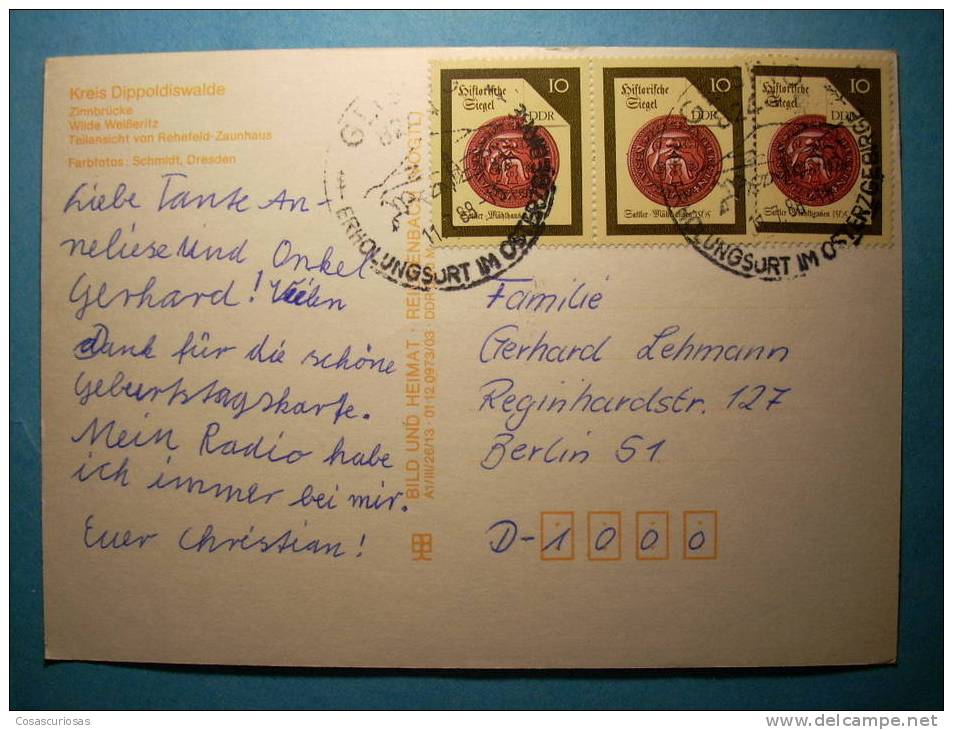 Kreis Dippoldiswalde
Zinnbrücke
Wilde Weißeritz
Teilansicht von Rehnfeld-Zaunhaus
Farbfotos: Schmidt, Dresden
Liebe Tante An-
neliese und Onkel
Gerhard! Vielen
Dank für die schöne
Geburtstagskarte.
Mein Radio habe
ich immer bei mir.
Euer Christian!
BILD UND HEIMAT · REICHENBACH (VOGTL)
A1/III/26/13 · 01 12 0973/03 · DDR
Historische Siegel
10
DDR
Sattler · Mühlhausen
Historische Siegel
10
DDR
Sattler · Mühlhausen 1565
Historische Siegel
10
DDR
Sattler · Mühlhausen 1565
ERHOLUNGSORT IM OSTERZGEBIRGE
ERHOLUNGSORT IM OSTERZGEBIRGE
Familie
Gerhard Lehmann
Reginhardstr. 127
Berlin 51
D-1000
Cosascuriosas
www.delcampe.net